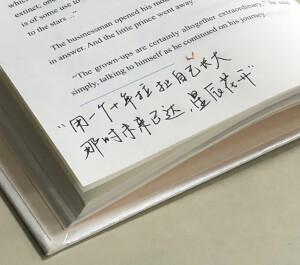 extinct, one
is of some use to
to the stars ..."
The businessman opened his mou
in answer. And the little prince went away.
"The grown-ups are certainly altogether extraordinary," he said
simply, talking to himself as he continued on his journey.
"用一个十年拉扯自己长大
那时未来已达,星辰落开"